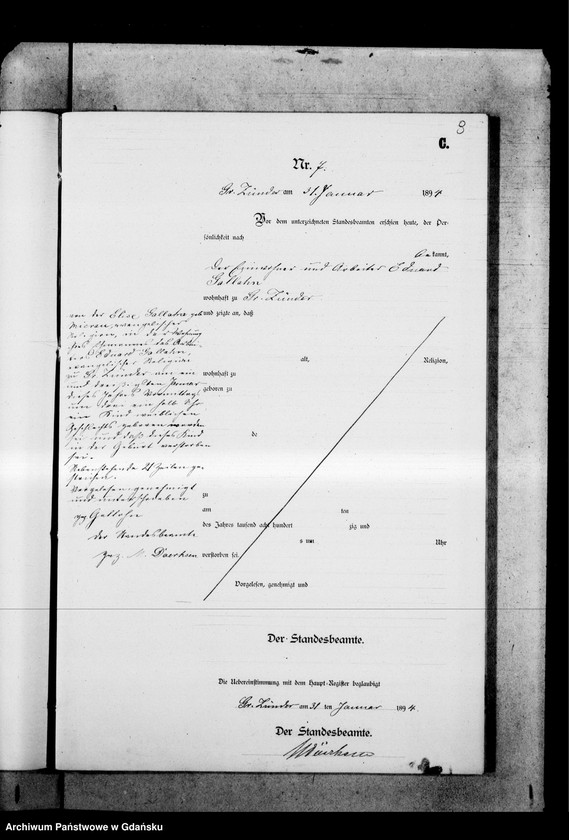 3
C.
Nr. 7.
Gr. Zünder am 31. Januar 1894
Vor dem unterzeichneten Standesbeamten erschien heute, der Per-
sönlichkeit nach
bekannt,
Der Einwohner und Arbeiter Eduard
Gallahn
wohnhaft zu Gr. Zünder
und zeigte an, daß
von der Elise Gallahn geb
evangelischer
Religion, in der Wohnung
ihres Ehemannes des Arbei-
ters Eduard Gallahn,
evangelischer Religion
zu Gr. Zünder am ein
und dreißigsten Januar
dieses Jahres Vormittags
um ein halb Uhr
ein Kind weiblichen
Geschlechts geboren worden
sei und daß dieses Kind
in der Geburt verstorben
sei.
Nebenstehende 21 Zeilen ge-
strichen.
Vorgelesen, genehmigt
und unterschrieben
gez Gallahn
Der Standesbeamte
gez. M. Doerksen
alt, Religion,
wohnhaft zu
geboren zu
de
zu
am ten
des Jahres tausend acht hundert zig und
s um Uhr
verstorben sei.
Vorgelesen, genehmigt und
Der Standesbeamte.
Die Uebereinstimmung mit dem Haupt-Register beglaubigt
Gr. Zünder am 31 ten Januar 1894.
Der Standesbeamte.
MDoerksen
Archiwum Państwowe w Gdańsku